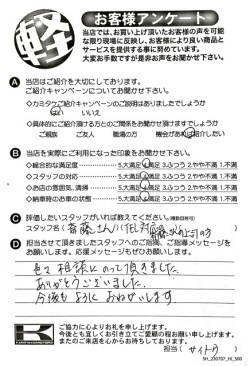 軽
お客様アンケート
当店では、お買い上げ頂いたお客様の声を可能
な限り現場に反映し、お客様により良い商品と
サービスを提供する事に努めています。
大変お手数ですが是非お声をお聞かせ下さい。
A 当店はご紹介を大切にしております。
ご紹介キャンペーンについてお聞かせ下さい。
◇カミタケご紹介キャンペーンのご説明はありましたでしょうか
はい いいえ
◇具体的にご紹介頂ける方とのご関係をお聞かせ頂けますでしょうか
ご親族 ご友人 職場の方 機会があれば紹介したい
B 当店を実際にご利用になった印象をお聞かせ下さい。
◇総合的な満足度 5.大満足 4.満足 3.ふつう 2.やや不満 1.不満
◇スタッフの対応 5.大満足 4.満足 3.ふつう 2.やや不満 1.不満
◇お店の雰囲気、清掃 5.大満足 4.満足 3.ふつう 2.やや不満 1.不満
◇納車時のお車の状態 5.大満足 4.満足 3.ふつう 2.やや不満 1.不満
C 評価したいスタッフがいれば教えてください。(複数回答可)
スタッフ名(斎藤さん)
D 担当させて頂きましたスタッフへのご感想、ご指導メッセージをお
願いします。応援メッセージもぜひお願いします。
色々相談にのって頂きました。
ありがとうございました。
今後もよろしくおねがいします。
ご協力に心よりお礼を申し上げます。
今後とも宜しくお引き立てご愛顧の程お願い申し上げます。
またのご来店を心からお待ちしております。
担当(サイトウ)
SH_230707_HI_500